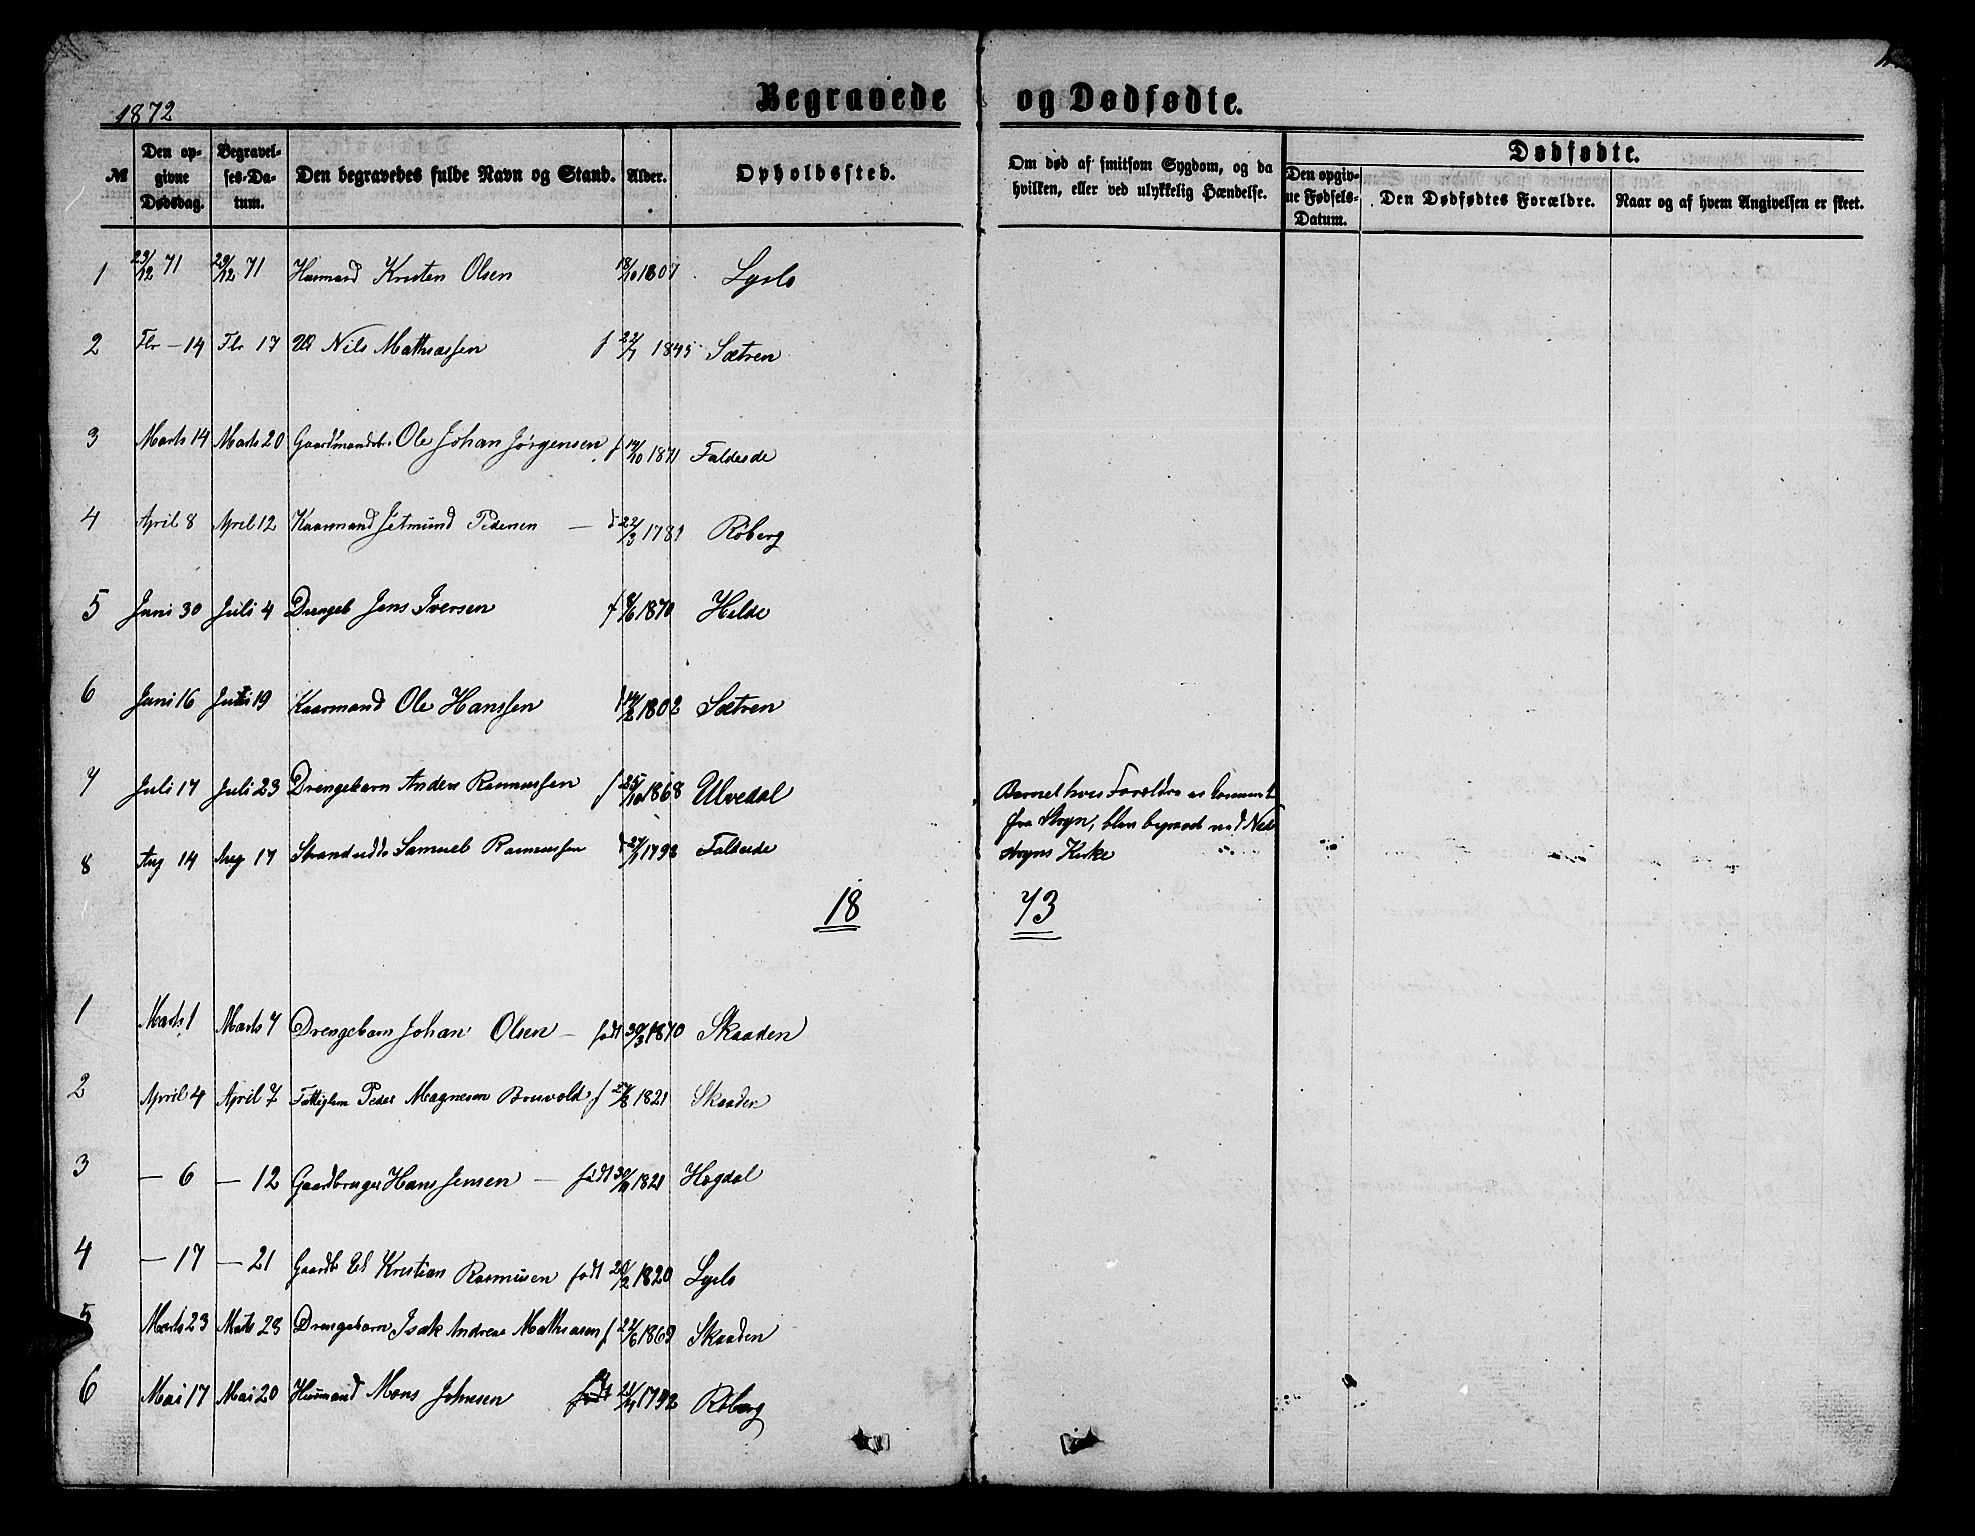 1872
Begravede og Dødfødte.
№
Den opgivne Dødsdag.
Begravelses-Datum.
Den begravedes fulde Navn og Stand.
Alder.
Opholdssted.
Om død af smitsom Sygdom, og da hvilken, eller ved ulykkelig Hændelse.
Dødfødte.
Den opgivne Fødsels-Datum.
Den Dødfødtes Forældre.
Naar og af hvem Angivelsen er skeet.
1 23/12 71 29/12 71 Huusmand Kristen Olsen 18/10 1807 Lyslo
2 Fbr - 14 Fbr 17 Nils Mathiassen f 22/7 1845 Sætren
3 Marts 14 Marts 20 Gaardmandsb. Ole Johan Jørgensen f 14/10 1871 Faldeide
4 April 8 April 12 Kaarmand Jetmund Pedersen - f 22/3 1781 Røberg
5 Juni 30 Juli 4 Drengeb Jens Iversen f 8/6 1870 Helde
6 Juni 16 Juni 19 Kaarmand Ole Hanssen f 14/2 1802 Sætren
7 Juli 17 Juli 23 Drengebarn Anders Rasmussen f 25/10 1868 Ulvedal
Barnet hvis Forældre er kommet
fra Stryn, blev begravet ved Ned
stryns Kirke
8 Aug 14 Aug 17 Strandsidder Samuel Rasmussen 1798 Faldeide
18 73
1 Marts 1 Marts 7 Drengebarn Johan Olsen - født 30/3 1870 Skaaden
2 April 4 April 7 Fattiglem Peder Magnesen Bruvold f 1821 Skaaden
3 - 6 - 12 Gaardbruger Hans Jensen - født 30/11 1821 Hogdal
4 - 17 - 21 Gaardb El Kristian Rasmusen født 20/2 1820 Lyslo
5 Marts 23 Marts 28 Drengebarn Isak Andreas Mathiasen f 22/6 1869 Skaaden
6 Mai 17 Mai 20 Huusmand Mons Johnsen født 1792 Røberg